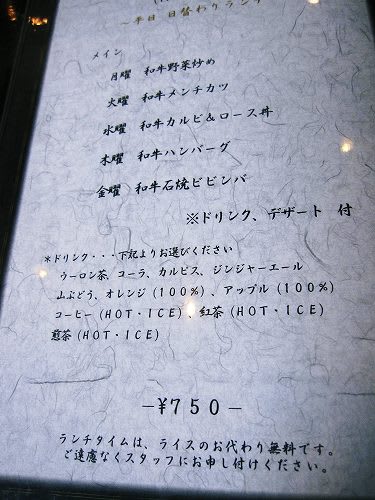 ～平日 日替わりランチ
メイン
月曜 和牛野菜炒め
火曜 和牛メンチカツ
水曜 和牛カルビ＆ロース丼
木曜 和牛ハンバーグ
金曜 和牛石焼ビビンバ
※ドリンク、デザート 付
＊ドリンク・・・下記よりお選びください
ウーロン茶、コーラ、カルピス、ジンジャーエール
山ぶどう、オレンジ(100%)、アップル(100%)
コーヒー(HOT・ICE)、紅茶(HOT・ICE)
煎茶(HOT・ICE)
-￥750-
ランチタイムは、ライスのお代わり無料です。
ご遠慮なくスタッフにお申し付けください。